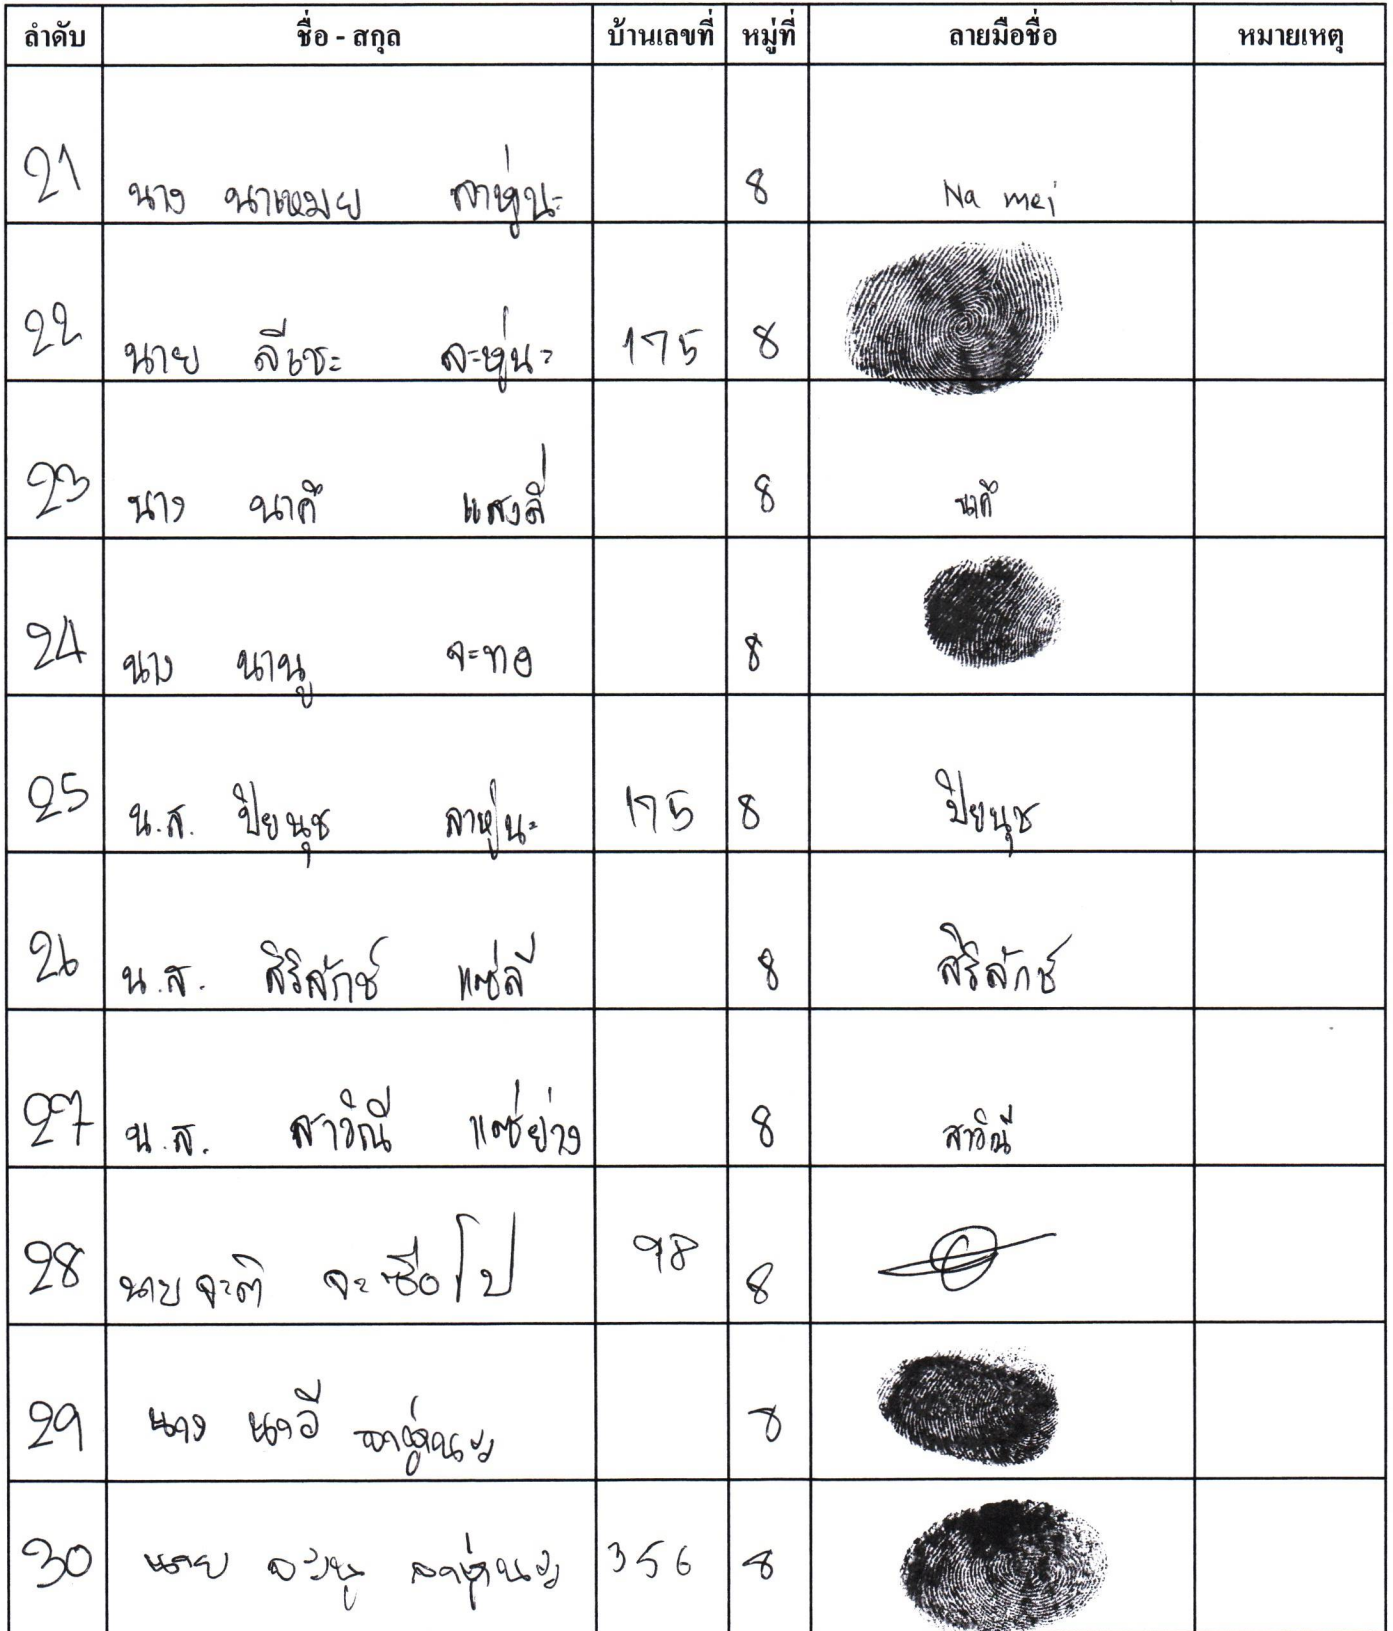 ลำดับ ชื่อ - สกุล บ้านเลขที่ หมู่ที่ ลายมือชื่อ หมายเหตุ
21 นาง นาเหมย ลาหู่นะ 8 Na mei
22 นาย ลีเชะ ละหู่นะ 175 8
23 นาง นาคี แสงลี่ 8 นาคี
24 นาง นานู จะทอ 8
25 น.ส. ปิยนุช ลาหู่นะ 175 8 ปิยนุช
26 น.ส. สิริลักษ์ แซ่ลี 8 สิริลักษ์
27 น.ส. สาวิณี แซ่ย่าง 8 สาวิณี
28 นาย จะติ จะซือโป 98 8
29 นาง นาวี ลาหู่นะ 8
30 นาย ลาหู่นะ 356 8